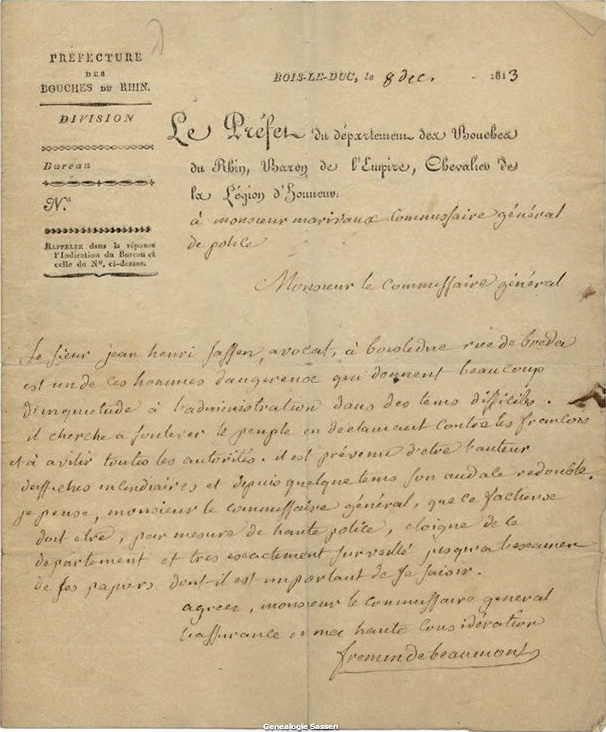 PRÉFECTURE
DES
BOUCHES DU RHIN.
DIVISION
Bureau
N.º
RAPPELER dans la réponse
l'Indication du Bureau et
celle du Nº. ci-dessus.
BOIS-LE-DUC, le 8 dec. 1813
Le Préfet du département des Bouches
du Rhin, Baron de l'Empire, Chevalier de
la Légion d'Honneur.
à monsieur marivaux Commissaire général
de police
Monsieur le commissaire général
Le sieur jean henri sassen, avocat, à boisleduc rue de breda
est un de ces hommes dangereuse qui donnent beaucoup
d'inquietude à l'administration dans des tems difficiles.
il cherche a soulever le peuple en déclamant contre les francois
et à avilir toutes les autorités. il est prévenu d'etre l'auteur
d'affiches incendiaires et depuis quelque tems son audace redouble.
je pense, monsieur le commissaire général, que ce factieuse
doit etre, par mesure de haute police, eloigné de le
departement et tres exactement surveillé jusqu'a l'examen
de ses papiers dont il est important de se saisir.
agreez, monsieur le commissaire general
l'assurance de ma haute considération
fremindebeaumont
Genealogie Sassen